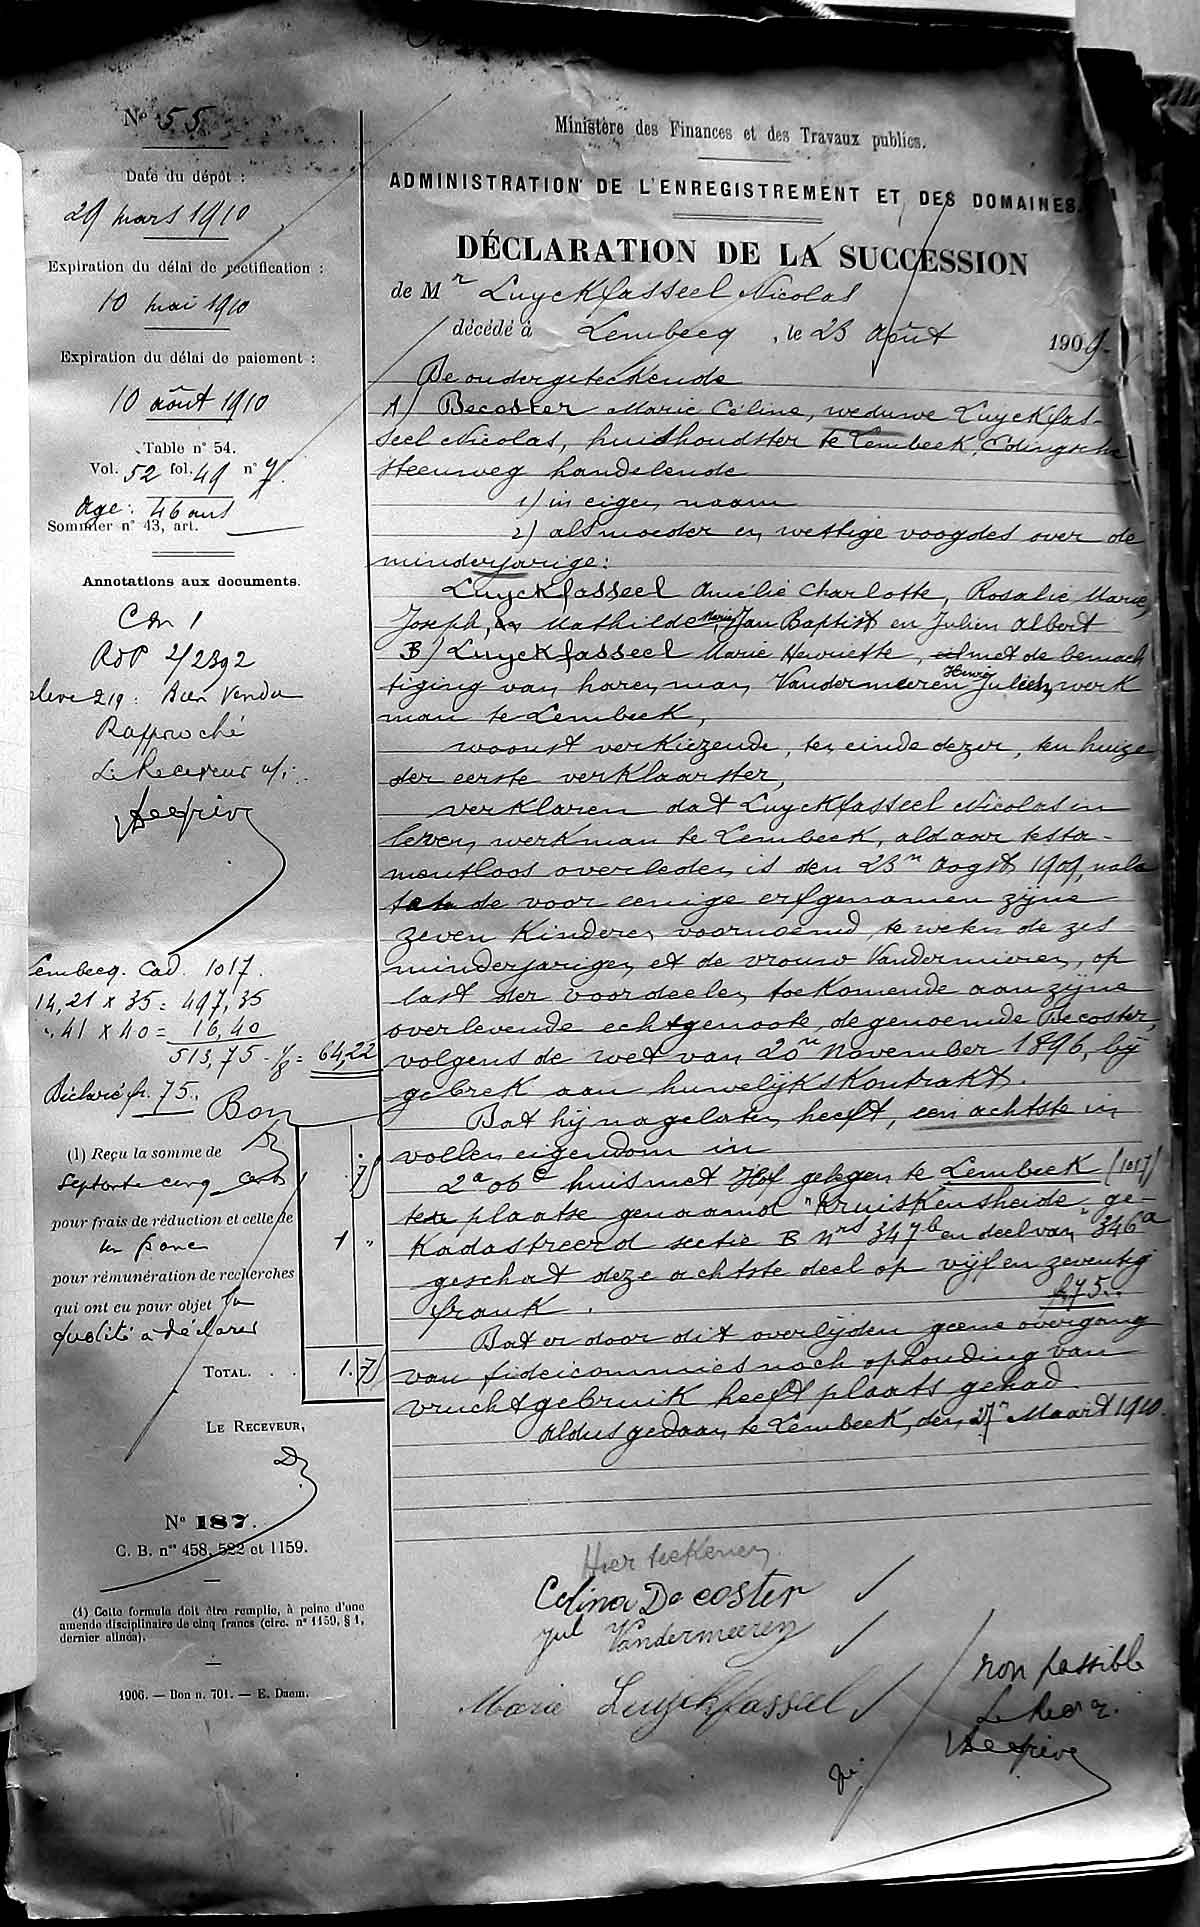 N° 55
Date du dépôt :
29 mars 1910
Expiration du délai de rectification :
10 mai 1910
Expiration du délai de paiement :
10 août 1910
Table n° 54.
Vol. 52 fol. 49 n° 7.
Age : 46 ans
Sommier n° 43, art.
Annotations aux documents.
Con 1
RdP 2/2392
219 : Bien Vendu
Rapproché
Le Receveur a/i
Lembecq. Cad. 1017.
14,21 x 35 = 497,35
".41 x 40 = 16,40
513,75 - 1/8 = 64,22
Déclaré fr. 75.
Bon
(1) Reçu la somme de
septante cinq cent
.75
pour frais de réduction et celle de
un franc
1 "
pour rémunération de recherches
qui ont eu pour objet la
qualité à déclarer
TOTAL. . . 1.75
LE RECEVEUR,
N° 187.
C. B. nos 458, 522 et 1159.
(1) Cette formule doit être remplie, à peine d'une
amende disciplinaire de cinq francs (circ. n° 1159, § 1,
dernier alinéa).
1906. — Bon n. 701. — E. Daem.
Ministère des Finances et des Travaux publics.
ADMINISTRATION DE L'ENREGISTREMENT ET DES DOMAINES.
DÉCLARATION DE LA SUCCESSION
de Mr Luyckfasseel Nicolas
décédé à Lembecq, le 23 août 1909-
De ondergeteekende
A) Decoster Marie Céline, weduwe Luyckfas-
seel Nicolas, huishoudster te Lembeek, Edingsche
steenweg handelende
1) in eigen naam
2) als moeder en wettige voogdes over de
minderjarige :
Luyckfasseel Amélie Charlotte, Rosalie Marie,
Joseph, Mathilde Marie, Jan Baptist en Julien Albert
B) Luyckfasseel Marie Henriette, met de bemach
tiging van haren man Vandermeeren Henri Julien, werk
man te Lembeek,
woonst verkiezende, ten einde dezer, ten huize
der eerste verklaarster,
verklaren dat Luyckfasseel Nicolas in
leven werkman te Lembeek, aldaar testa-
mentloos overleden is den 23n Oogst 1909, nala
tende voor eenige erfgenamen zijne
zeven kinderen voornoemd, te weten de zes
minderjarigen et de vrouw Vandermeeren, op
last der voordeelen toekomende aan zijne
overlevende echtgenoote, de genoemde Decoster,
volgens de wet van 20n November 1896, bij
gebrek aan huwelijkskontrakt.
Dat hij nagelaten heeft, een achtste in
vollen eigendom in
2a 06c huis met Hof gelegen te Lembeek (1017)
ter plaatse genaamd "Kruiskensheide" ge-
kadastreerd sectie B nrs 347b en deel van 346a
geschat deze achtste deel op vijf en zeventig
frank. fr 75.
Dat er door dit overlijden geene overgang
van fideicommies noch ophouding van
vruchtgebruik heeft plaats gehad.
Aldus gedaan te Lembeek, den 27n Maart 1910.
Hier teekenen
Celina De coster
Jul Vandermeeren
Marie Luyckfasseel
non passible
Le Recr